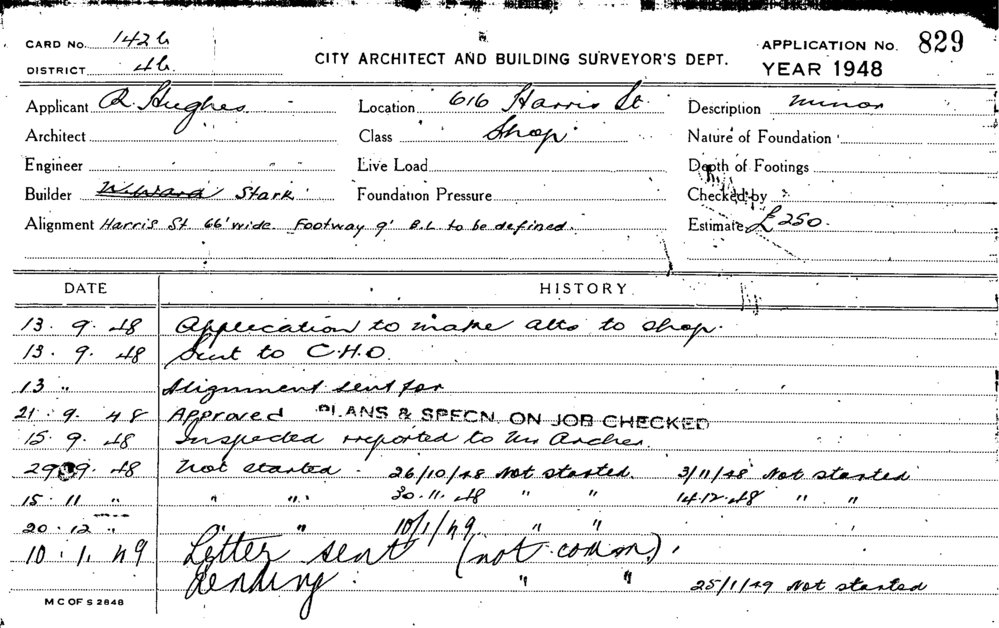 CARD No. 142b
DISTRICT 4b.
CITY ARCHITECT AND BUILDING SURVEYOR'S DEPT.
APPLICATION No. 829
YEAR 1948
Applicant R. Hughes Location 616 Harris St. Description Minor
Architect Class Shop Nature of Foundation
Engineer Live Load Depth of Footings
Builder W. Ward Stark Foundation Pressure Checked by
Alignment Harris St 66' wide. Footway 9' B.L. to be defined. Estimate £250.
DATE HISTORY
13. 9. 48 Application to make alts to shop.
13. 9. 48 Sent to C.H.O.
13 " Alignment sent for
21. 9. 48 Approved PLANS & SPECN. ON JOB CHECKED
15. 9. 48 Inspected & reported to Mr Archer.
29 9. 48 Not started. 26/10/48 Not started. 3/11/48 Not started
15. 11 " " " 30. 11. 48 " " 14.12.48 " "
20. 12 " " " 10/1/49 " "
10. 1. 49 Letter sent (not comm).
Pending. " " 25/1/49 Not started
M C OF S 2848